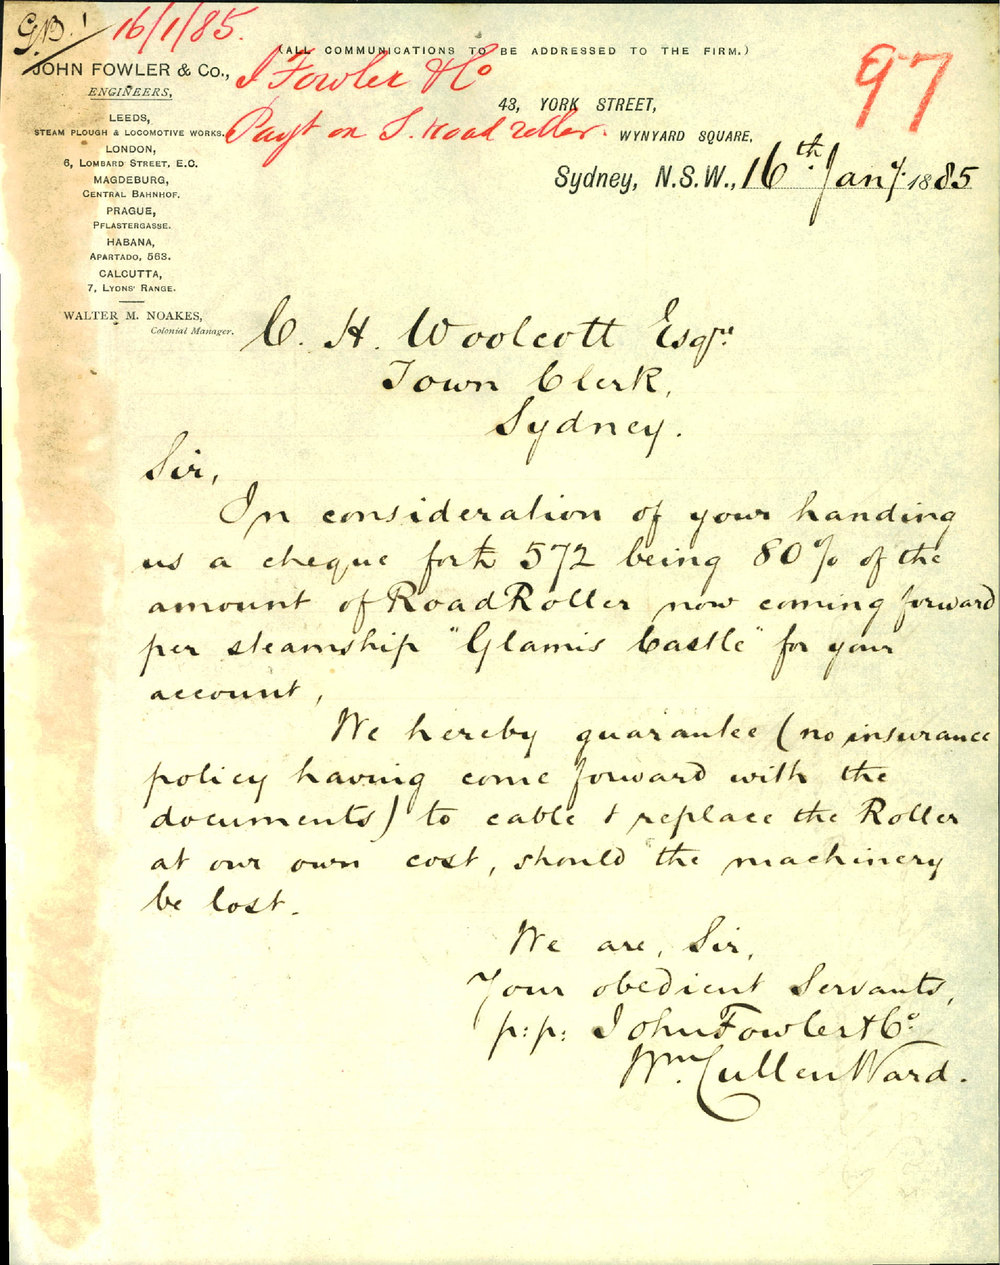 G.B. 16/1/85.
(ALL COMMUNICATIONS TO BE ADDRESSED TO THE FIRM.)
J Fowler & Co
Payt on S. Road roller.
97
JOHN FOWLER & Co.,
ENGINEERS,
LEEDS,
STEAM PLOUGH & LOCOMOTIVE WORKS.
LONDON,
6, LOMBARD STREET, E.C.
MAGDEBURG,
CENTRAL BAHNHOF.
PRAGUE,
PFLASTERGASSE.
HABANA,
APARTADO, 563.
CALCUTTA,
7, LYONS' RANGE.
WALTER M. NOAKES,
Colonial Manager.
43, YORK STREET,
WYNYARD SQUARE,
Sydney, N.S.W., 16th Jany. 1885
C. H. Woolcott Esqr.
Town Clerk,
Sydney.
Sir,
In consideration of your handing
us a cheque for £ 572 being 80% of the
amount of Road Roller now coming forward
per steamship "Glamis Castle" for your
account,
We hereby guarantee (no insurance
policy having come forward with the
documents) to cable & replace the Roller
at our own cost, should the machinery
be lost.
We are, Sir,
Your obedient Servants,
p:p: John Fowler & Co.
Wm. Cullen Ward.